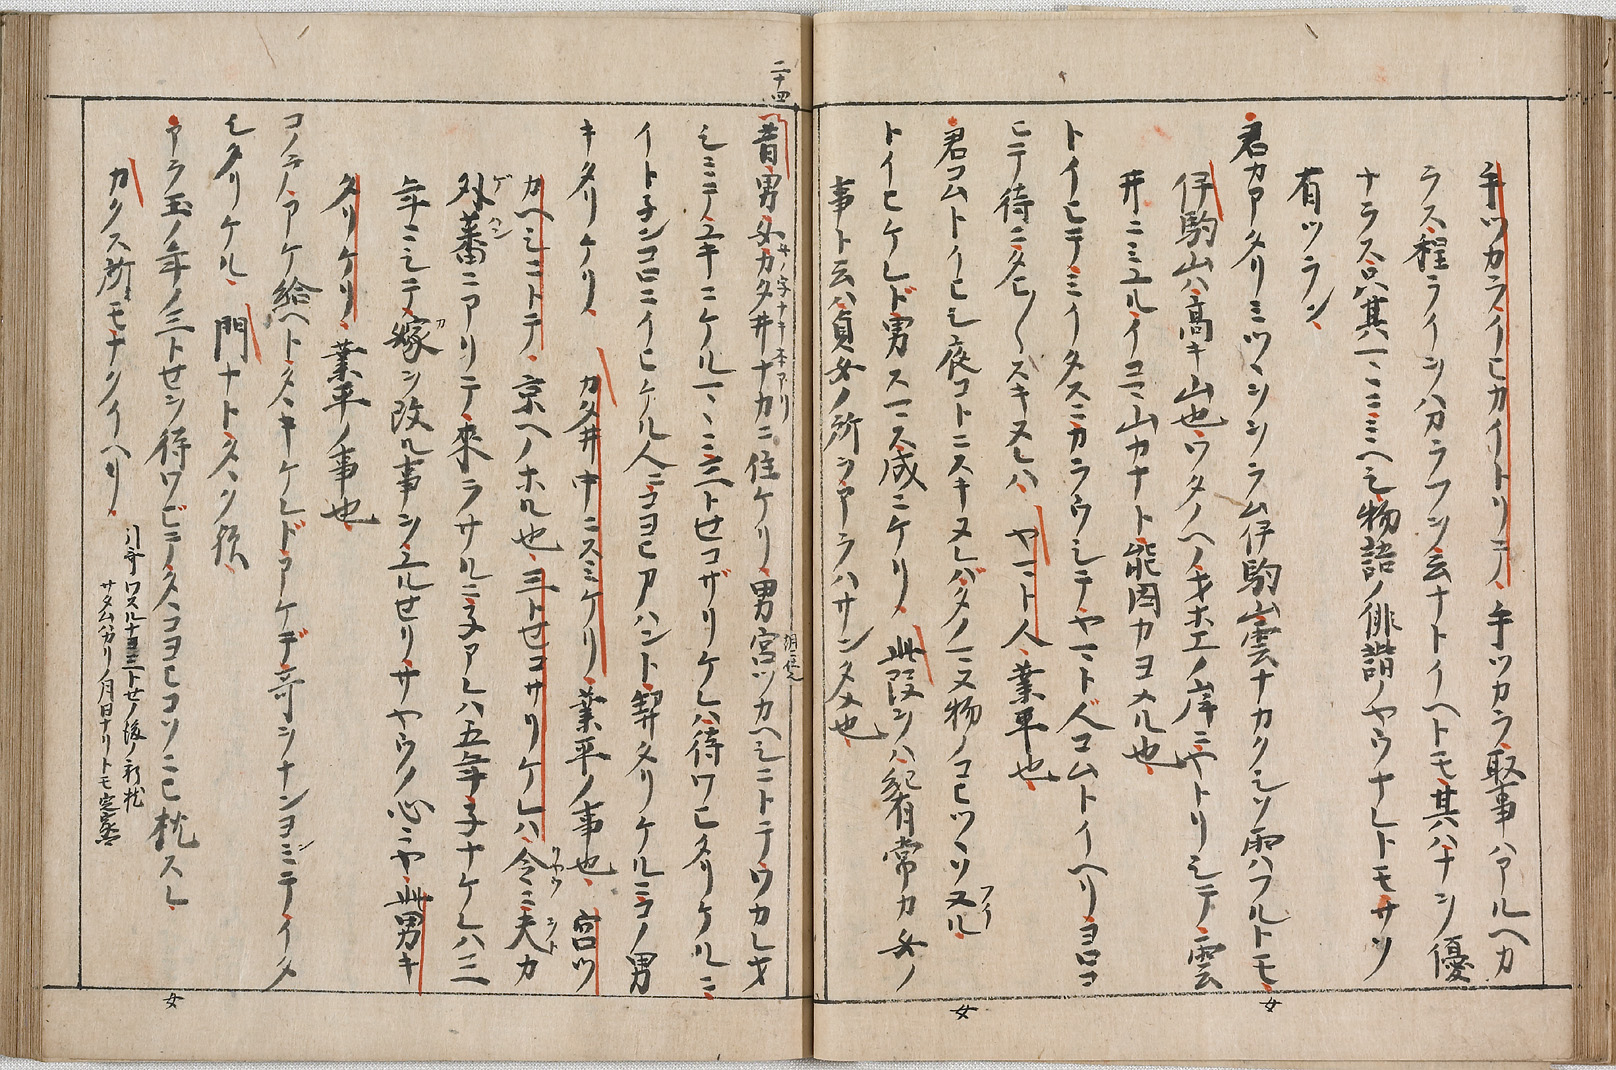 手ツカライヒカイトリテ、手ツカラ取事ハアルヘカ
ラス程ライシハカラフヲ云ナトイヘトモ其ハナシ優
ナラス只其マヽニミヘシ物語ノ俳諧ノヤウナレトモサソ
有ツラン
君カアタリミツヽシヲラム伊駒山雲ナカクシソ雨ハフルトモ
女
伊駒山ハ高キ山也ウタヘノキホエノ岸ニヤトリシテ雲
井ニミユルイコマ山カナト能因カヨメル也
トイヒテミイタスニカラウシテヤマト人コムトイヘリヨロコ
ヒテ待ニタヒ〱スキヌレハ、ヤマト人、業平也
君コムトイヒシ夜コトニスキヌレバタノマヌ物ノコヒツヽソヌル
フイ
女
トイヒケレド男スマス成ニケリ、此段ヲハ紀有常カ女ノ
事ト云ハ貞女ノ所ヲアラハサンタメ也
二十四
昔男女カタ井ナカニ住ケリ男宮ツカヘシニトテワカレオ
サノ字ナキ本アリ
シミテユキニケルマヽニ三トセコザリケレハ待ワヒタリケルニ
イト子ンコロニイヒケル人ニコヨヒアハント契タリケルニコノ男
キタリケリ、カタ井中ニスミケリ、業平ノ事也、宮ツ
カヘシニトテ、京ヘノホル也、三トセコサリケレハ、令ニ夫カ
外蕃ニアリテ来ラサルニ子アレハ五年子ナケレハ三
年ニシテ嫁ヲ改ル事ヲユルセリサヤウノ心ニヤ此男キ
タリケリ、業平ノ事也
コノテアケ給ヘトタヽキケレドアケデ奇ヲナンヨミテイタ
シタリケル、門ナトタヽク殊
アラ玉ノ年ノ三トセヲ待ワビテタヽコヨヒコソニヒ枕スレ
女
カクス所モナクイヘリ、
引哥 ワスルナヨ三トセノ後ノ新枕
サタムハカリノ月日ナリトモ定家